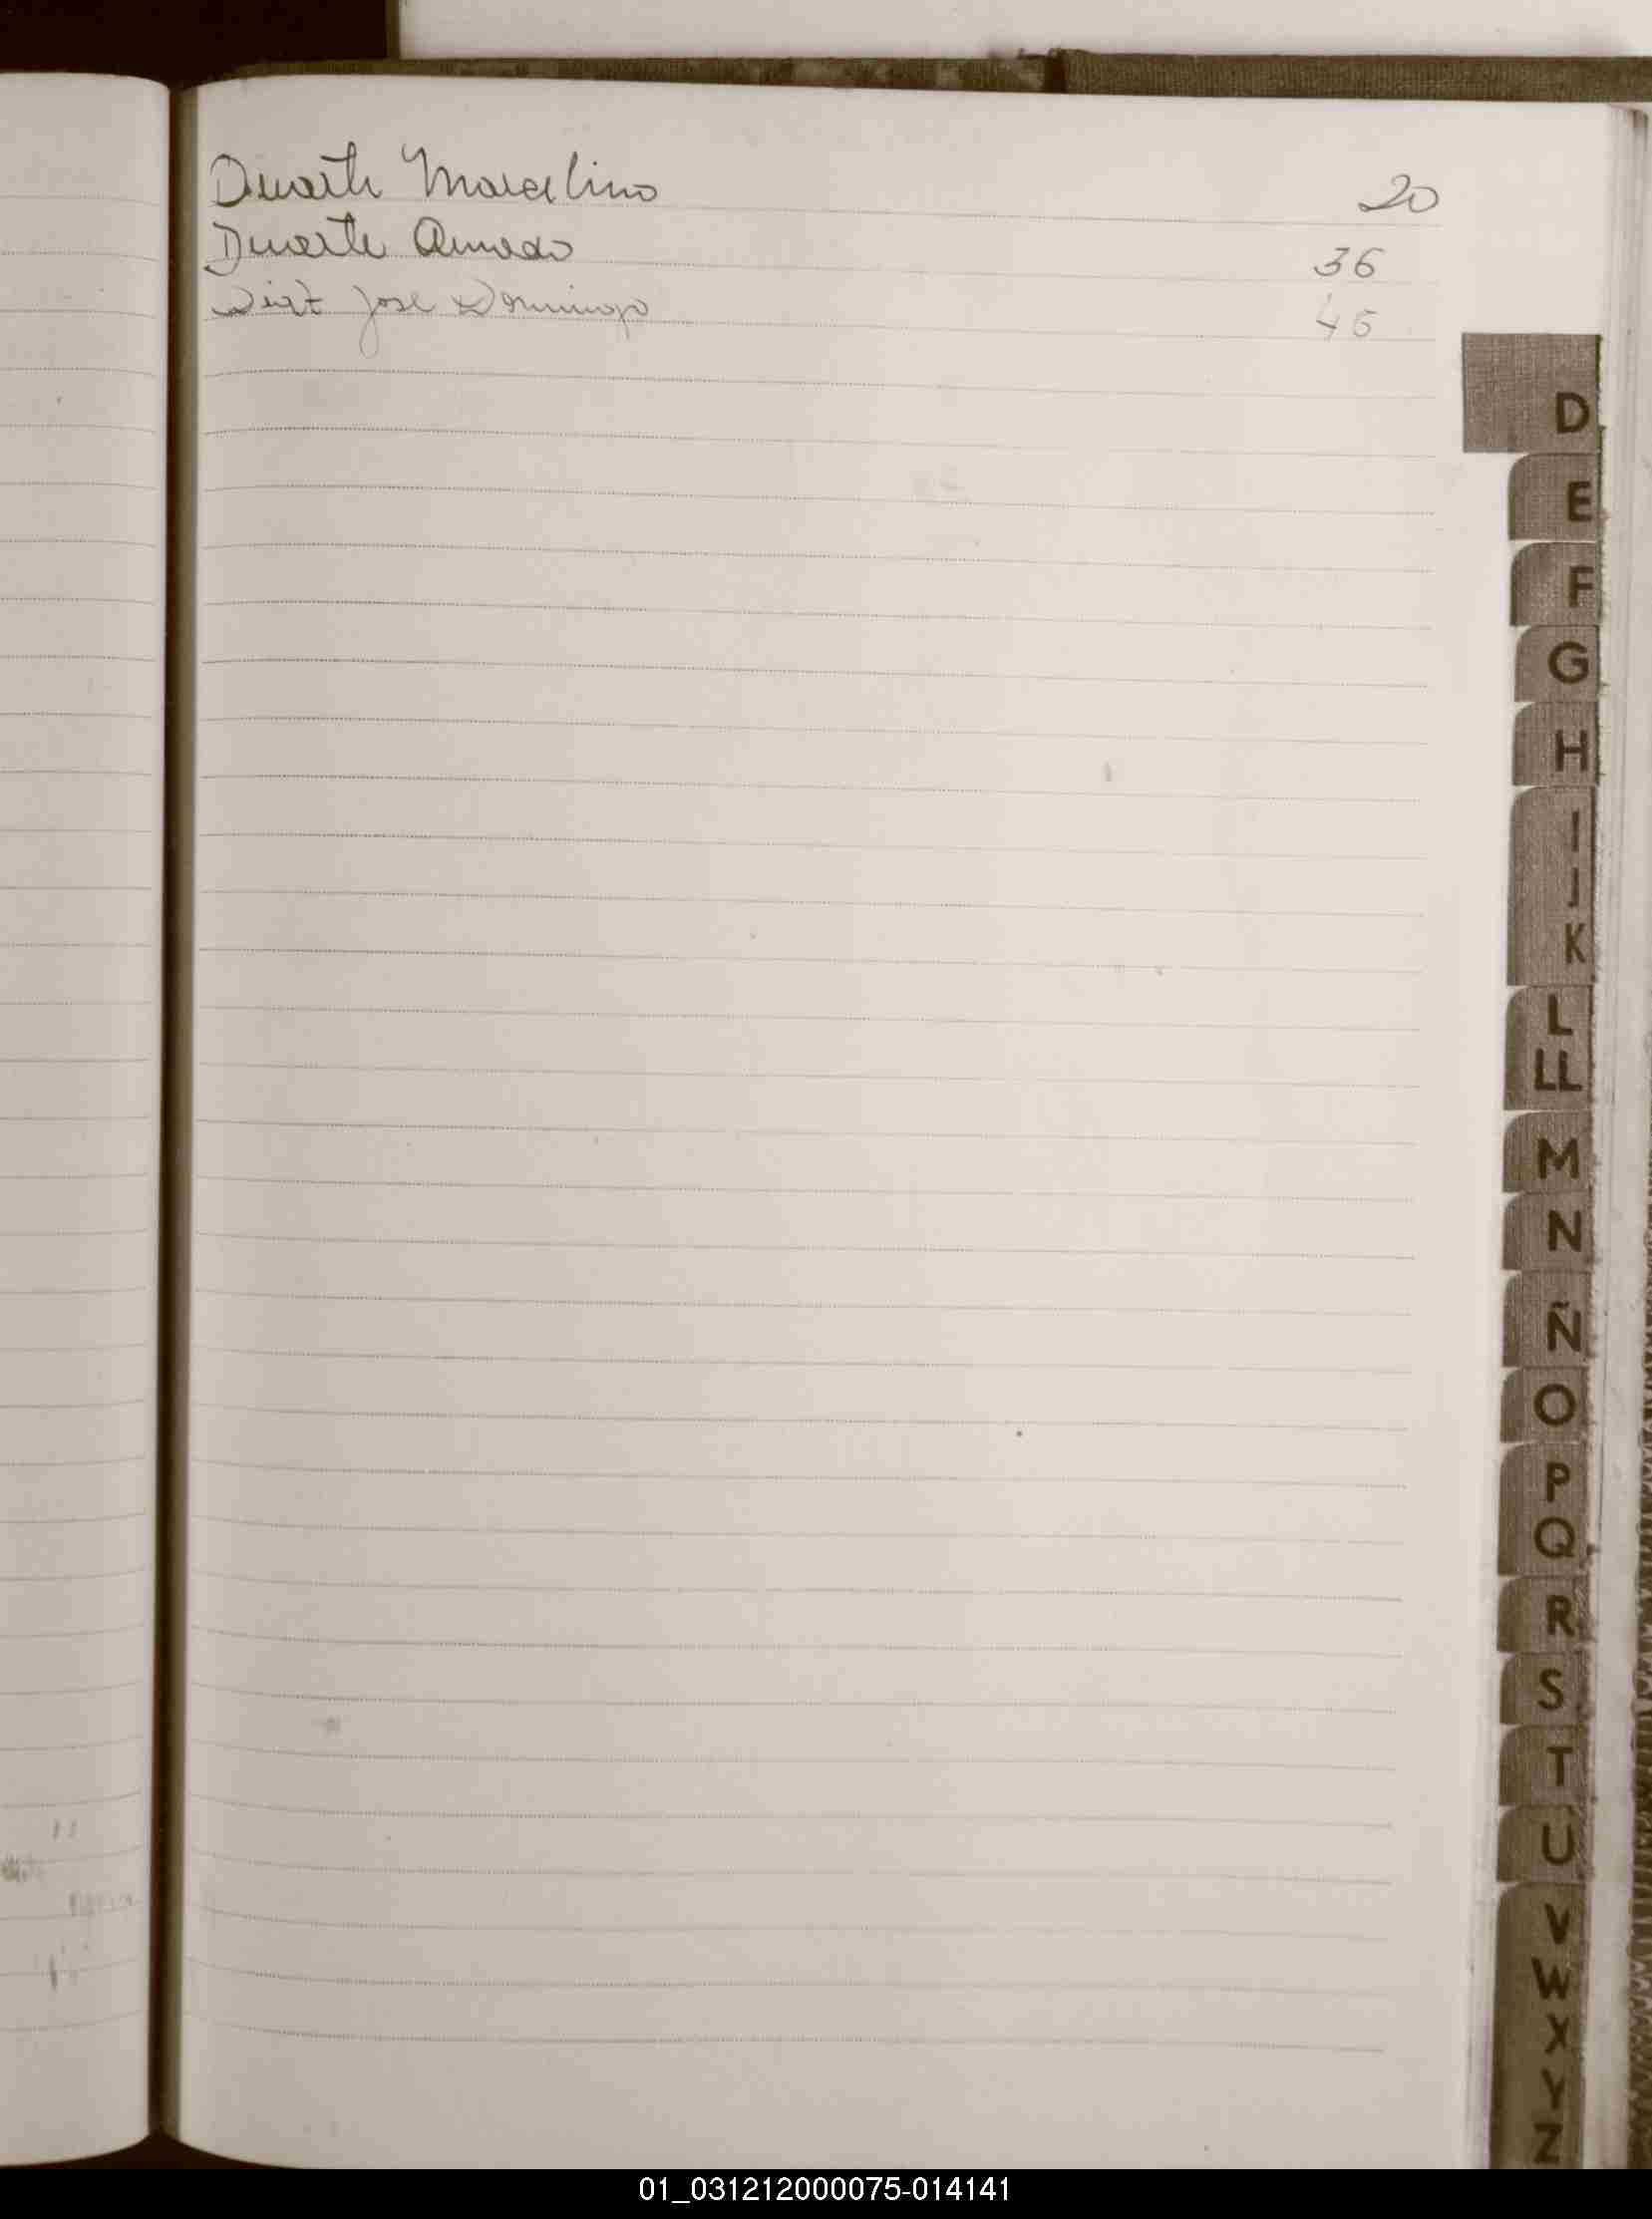 Duarte Marcelino 20
Duarte Amado 36
José Domingo 45
D
E
F
G
H
I
J
K
L
LL
M
N
Ñ
O
P
Q
R
S
T
U
V
W
X
Y
Z
01_031212000075-014141